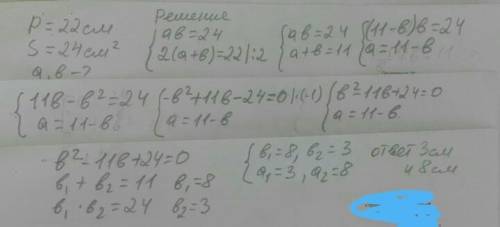 P=22см
S=24см²
a, в-?
Решение
{ aв=24
2(a+в)=22|:2
{ aв=24
a+в=11
{ (11-в)в=24
a=11-в
{ 11в-в²=24
a=11-в
{ -в²+11в-24=0|·(-1)
a=11-в
{ в²-11в+24=0
a=11-в
в²-11в+24=0
в₁+в₂=11 в₁=8
в₁·в₂=24 в₂=3
{ в₁=8, в₂=3
a₁=3, a₂=8
ответ 3см
и 8см